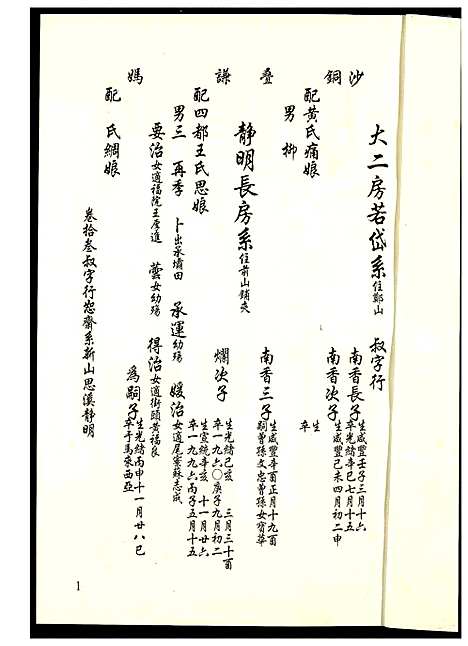 大二房若岱系 住鄭山 叔字行
沙 南香長子 生咸豐壬子三月十六 卒光緒辛巳七月十五
銅 南香次子 生咸豐己未四月初二申 卒
配黃氏痛娘 生 卒
男 抑
疊 南香三子 生咸豐辛酉正月十九酉 嗣曾孫文忠曾孫女寶華
靜明長房系 住前山鋪夾
謙 爛次子 生光緒己亥 三月三十酉 卒一九六〇庚子九月初二
配四都王氏思娘 生宣統辛亥 十一月廿六 卒一九九六丙子五月十五
男三 再季 卜出承壩田 承運幼殤 媛治女適尾寮蘇志成
要治女適福院王厚進 蕓女幼殤 得治女適街頭黃福良
媽 為嗣子 生光緒丙申十一月廿八巳 卒于馬來西亞
配 氏綢娘
卷拾叁叔字行恕齋系祈山思溪靜明
1